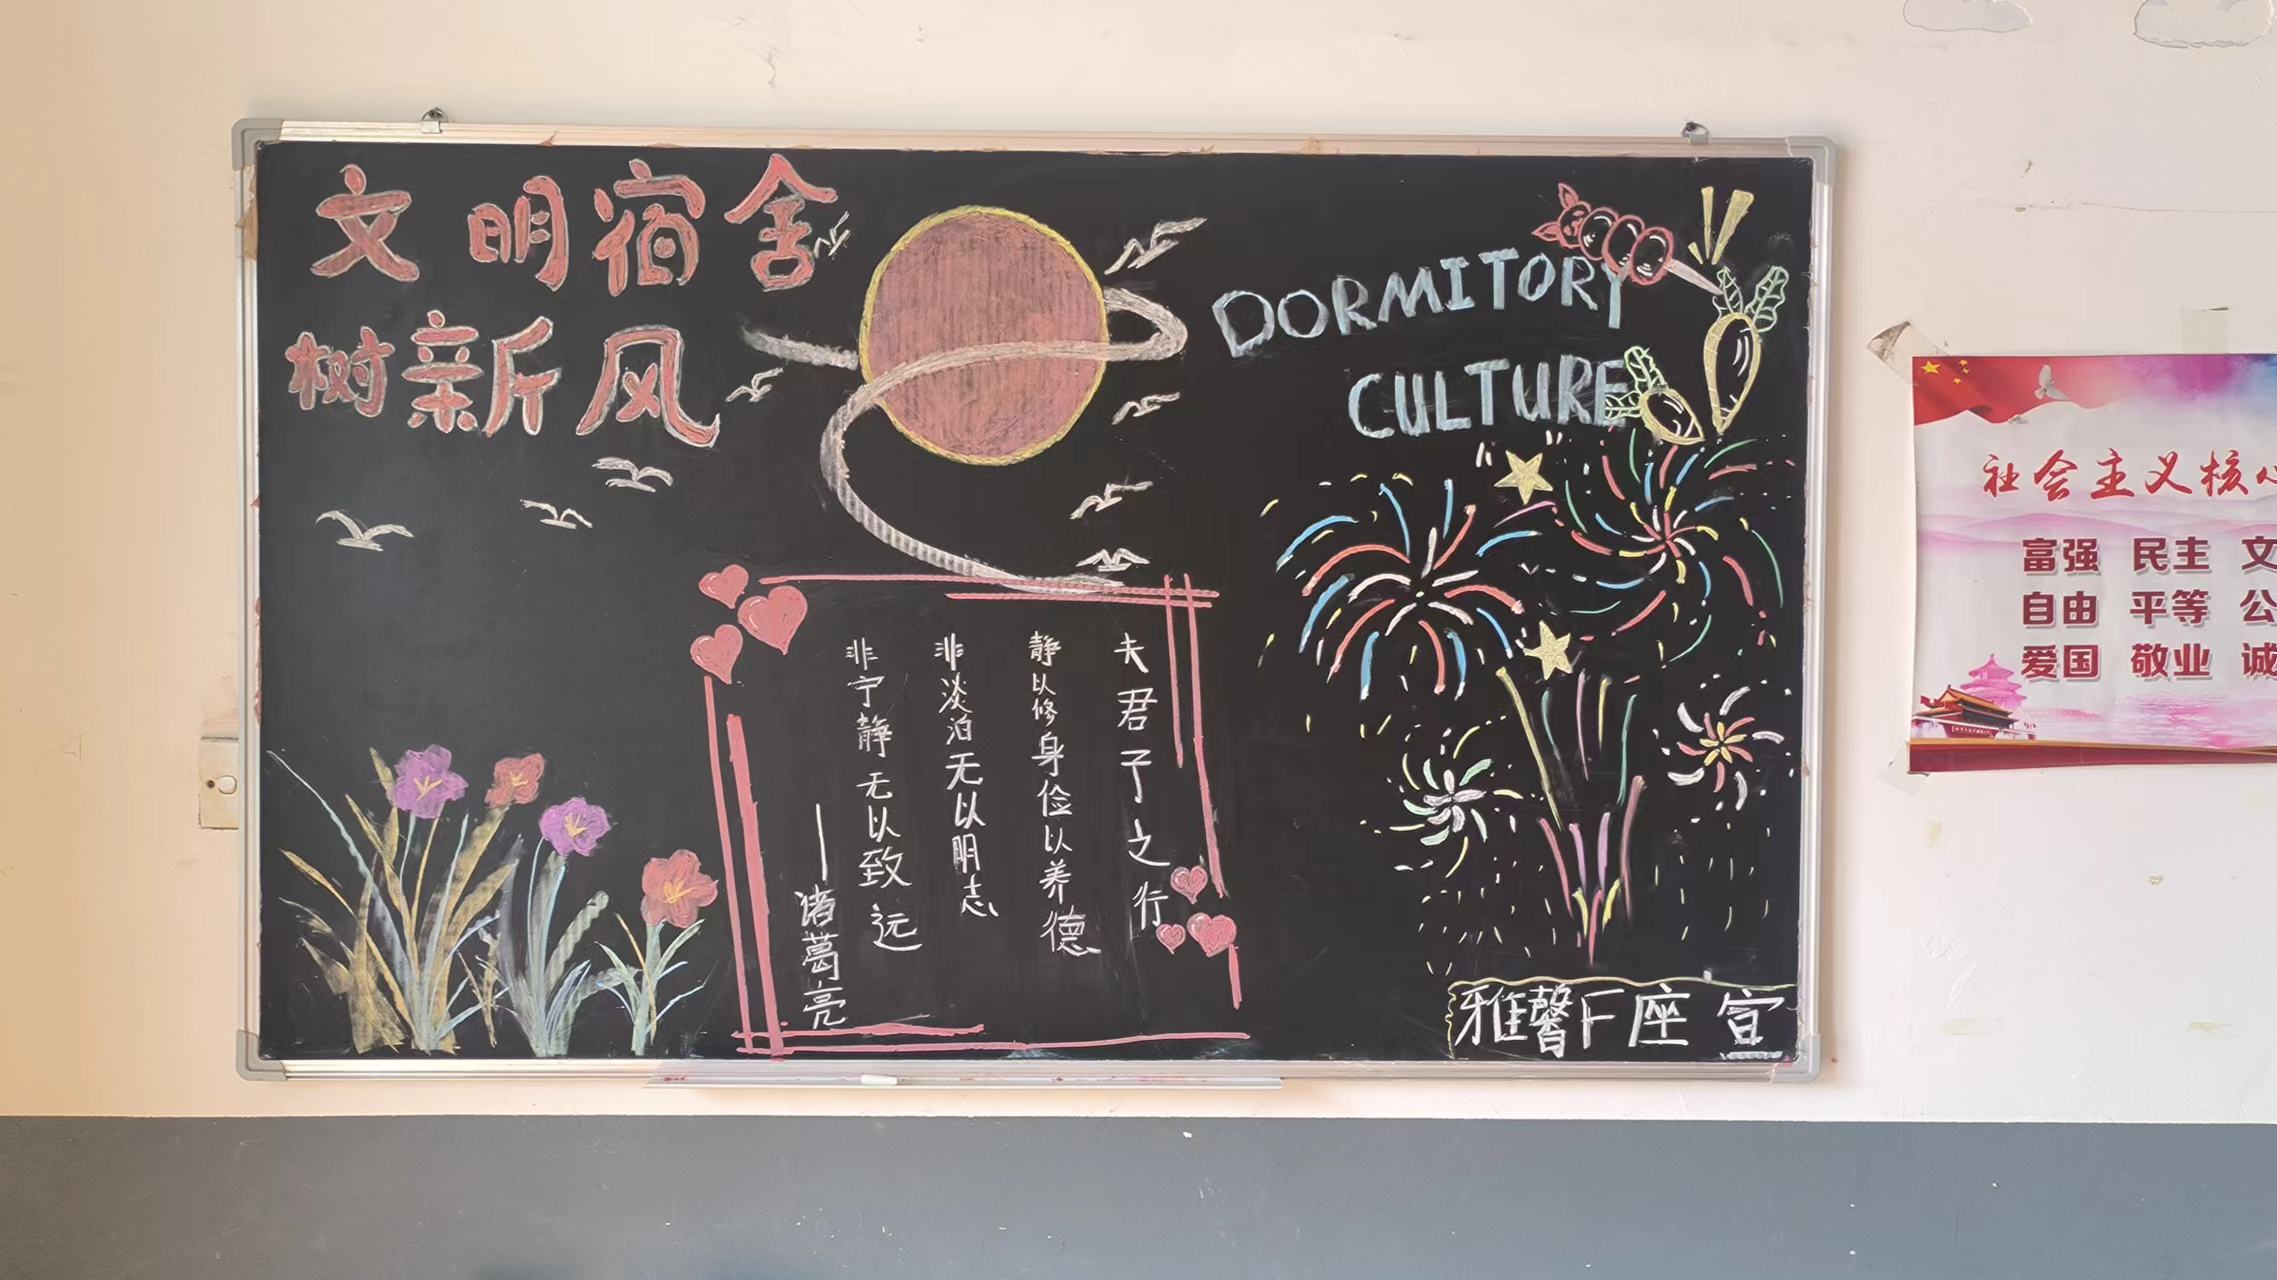 文明宿舍
树新风
DORMITORY
CULTURE
夫君子之行
静以修身俭以养德
非淡泊无以明志
非宁静无以致远
——诸葛亮
雅馨F座 宣
社会主义核心
富强 民主 文
自由 平等 公
爱国 敬业 诚